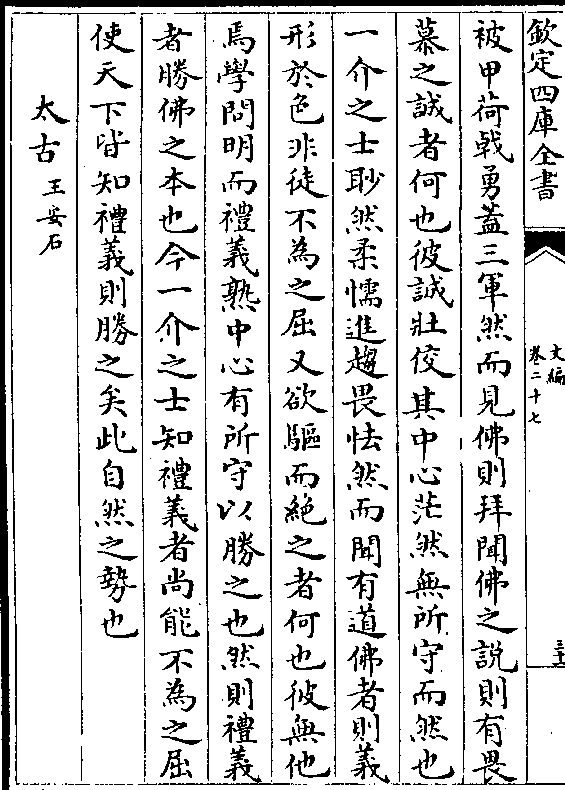 欽定四庫全書
文編
卷二十七
三十
被甲荷戟勇蓋三軍然而見佛則拜聞佛之說則有畏
慕之誠者何也彼誠壯佼其中心茫然無所守而然也
一介之士眇然柔懦進趨畏怯然而聞有道佛者則義
形於色非徒不為之屈又欲驅而絶之者何也彼無他
焉學問明而禮義熟中心有所守以勝之也然則禮義
者勝佛之本也今一介之士知禮義者尚能不為之屈
使天下皆知禮義則勝之矣此自然之勢也
太古王安石